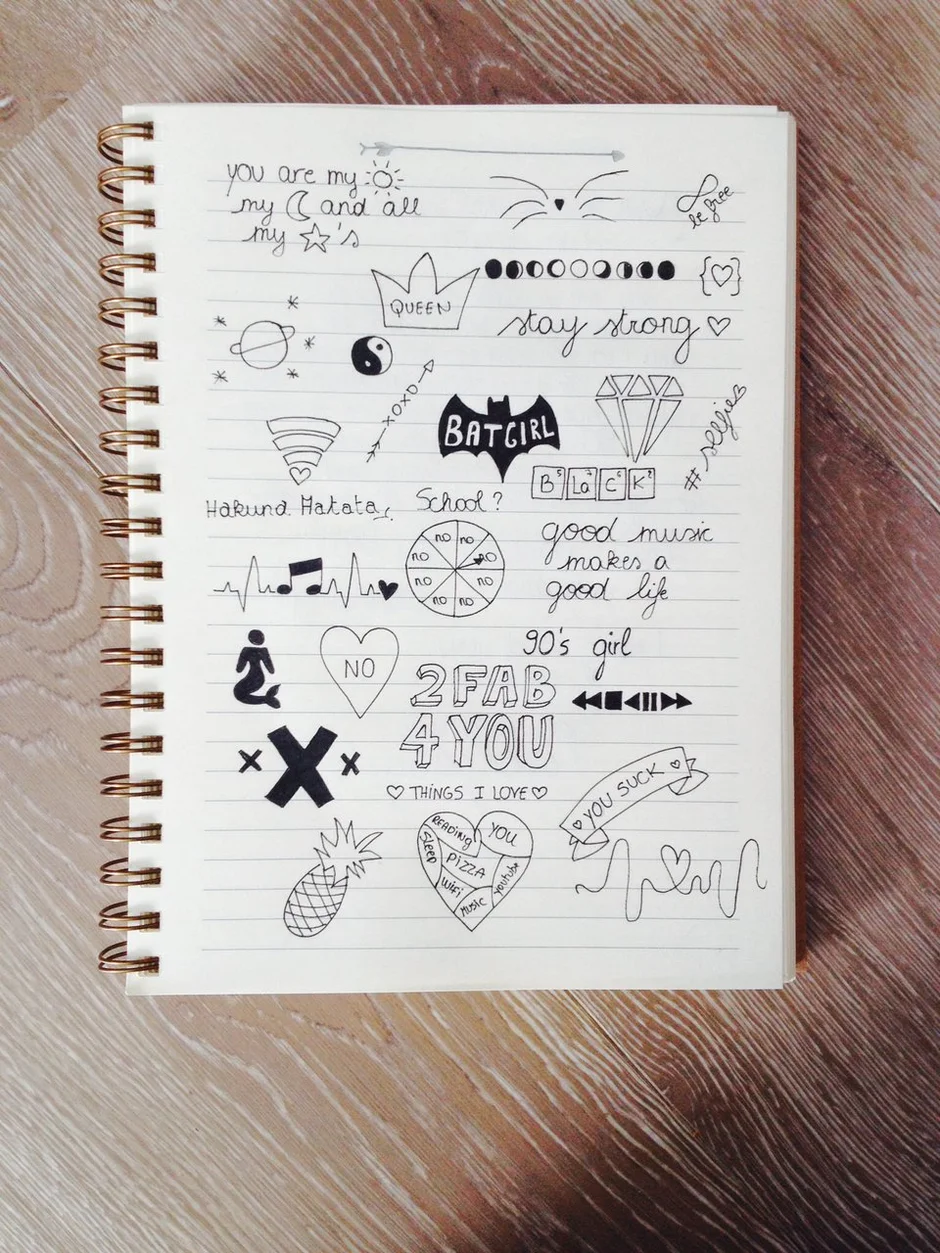 you are my
my and all
my 's
be free
QUEEN
stay strong
XOXO
BATGIRL
#selfie
B L a C K
Hakuna Matata
School?
NO
NO
NO
NO
NO
NO
NO
NO
good music
makes a
good life
90's girl
NO
2 FAB
4 YOU
X X X
THINGS I LOVE
YOU SUCK
READING
YOU
SLEEP
PIZZA
WiFi
YOUTUBE
MUSIC